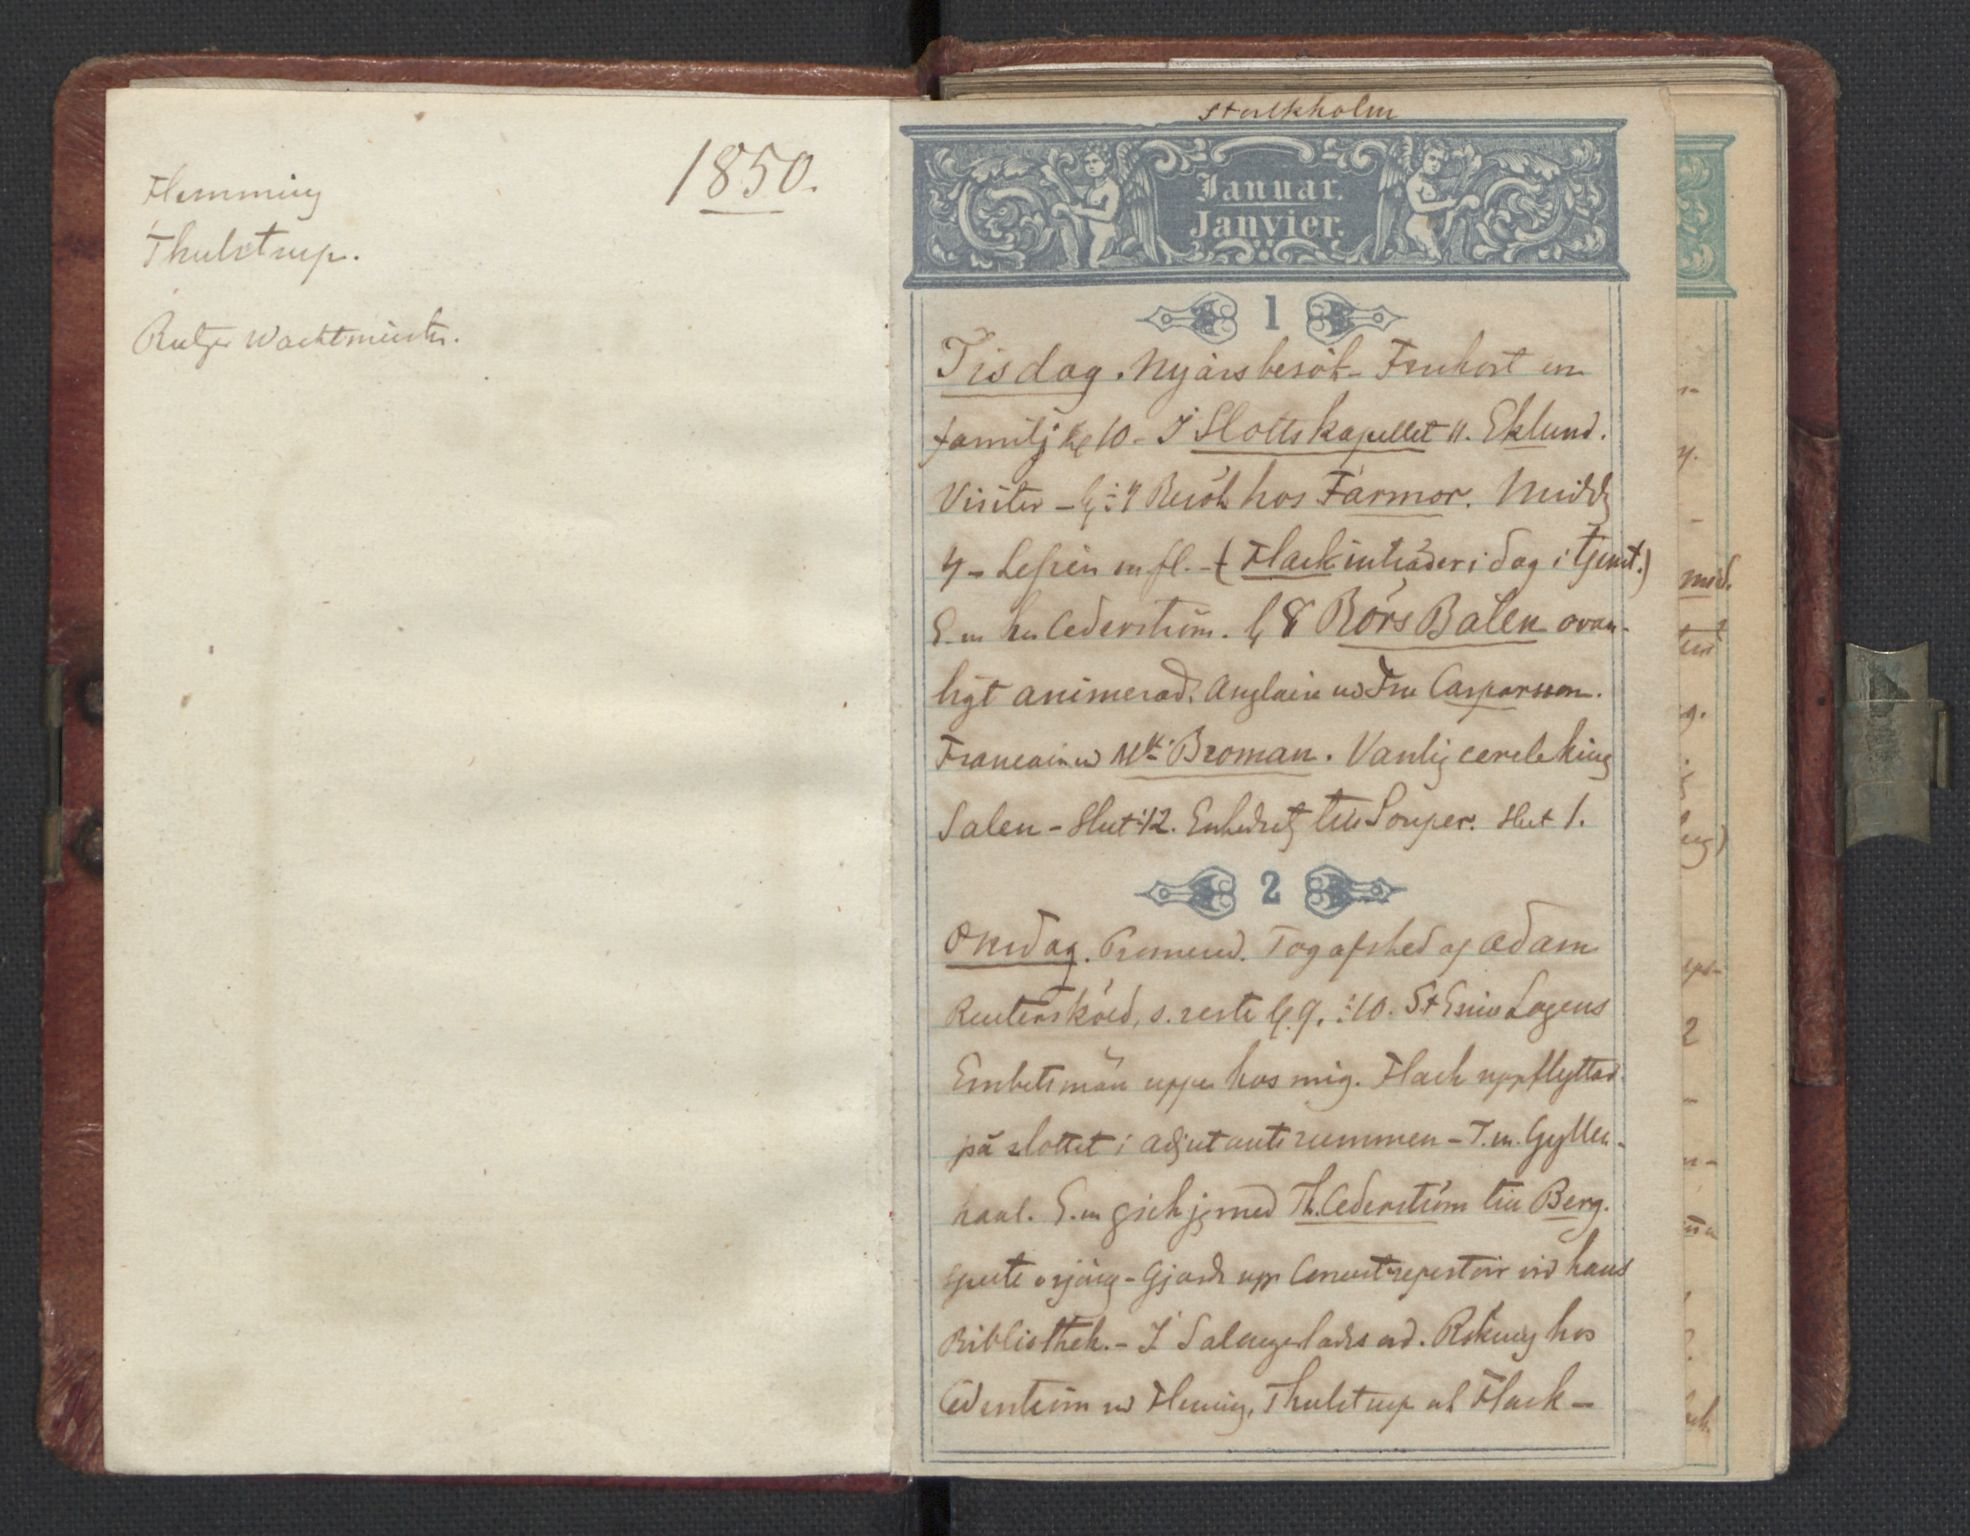 1850.
Flemming
Thulstrup.
Rutger Wachtmeister.
Stockholm
Januar.
Janvier.
1
Tisdag. Nyårsbesök - Frukost en
familj kl 10 - I Slottskapellet 11. Eklund.
Visiter - Besök hos Farmor. Midd
4 - Lefrén m fl. - (Flach inträder i dag i tjenst.)
E.m hos Cederström. kl 8 Börs Balen ovan-
ligt animerad. Anglaise m Fru Casparsson.
Francaise m Mlle Broman. Vanlig cercle kring
Salen - Slut 12. Enkedrtg till Souper. Slut 1.
2
Onsdag. Promend. Tog afsked af Adam
Reutersköld, s. reste kl 9. 10. St Eriks Logens
Embetsmän uppe hos mig. Flach uppflyttad
på slottet i adjutantsrummen - T.m. Gyllen-
haal. E.m gick jg med Th. Cederström till Berg.
spelte o sjöng - Gjorde upp Concertrepertoir vid hans
Bibliothek. - I Salen Rökning hos
Cederström m Fleming, Thulstrup och Flach -